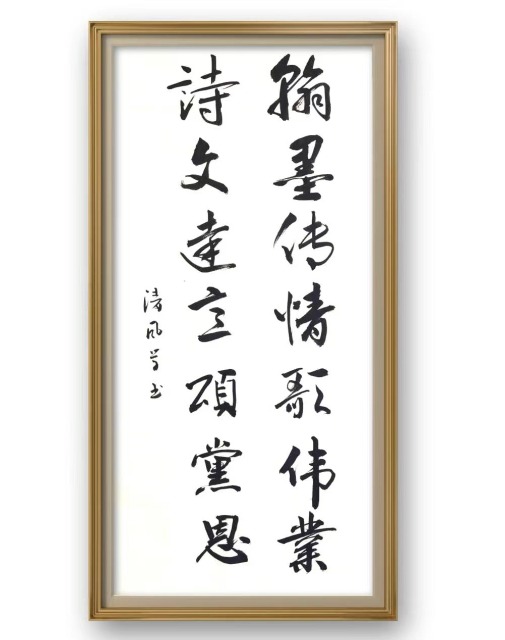 翰墨传情歌伟業
詩文達意頌黨恩
清风书